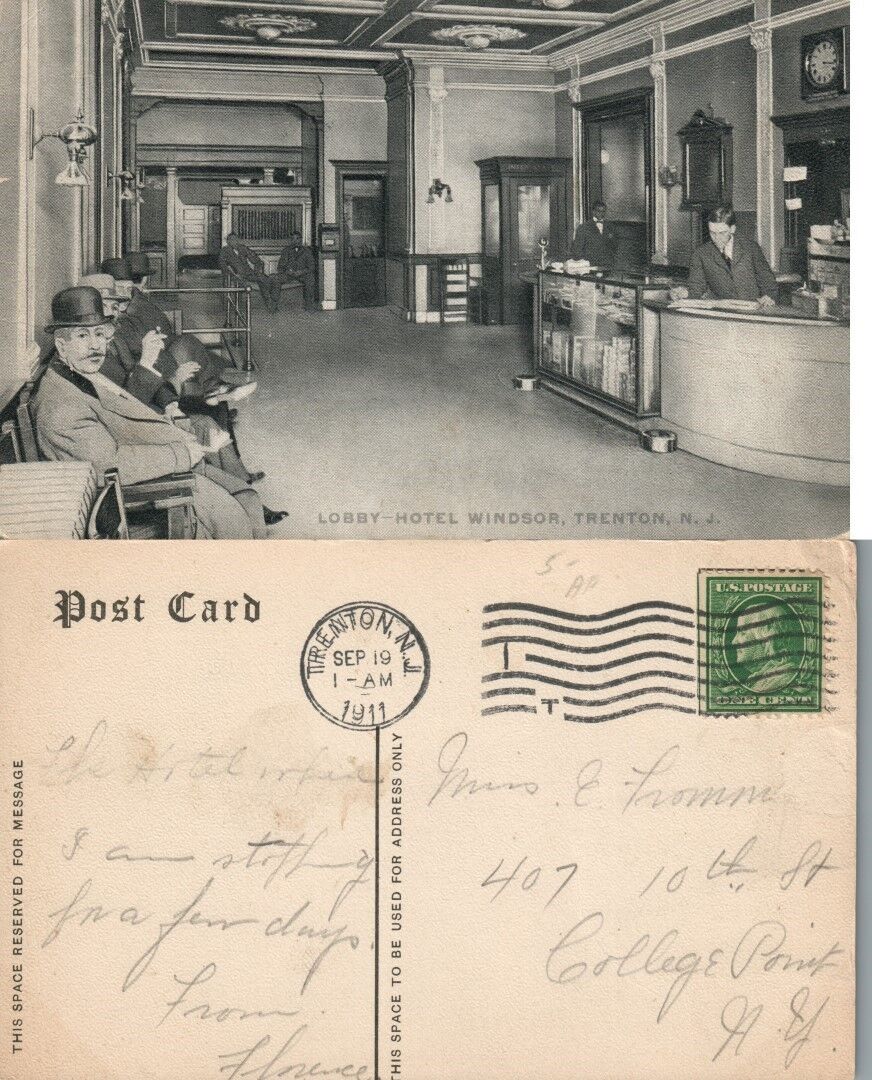 LOBBY—HOTEL WINDSOR, TRENTON, N. J.
Post Card
TRENTON, N.J.
SEP 19
1-AM
1911
T
U.S. POSTAGE
ONE CENT
THIS SPACE RESERVED FOR MESSAGE
THIS SPACE TO BE USED FOR ADDRESS ONLY
The Hotel where
I am stopping
for a few days.
From
Florence
E. Fromm
407 10th St
College Point
N. Y.